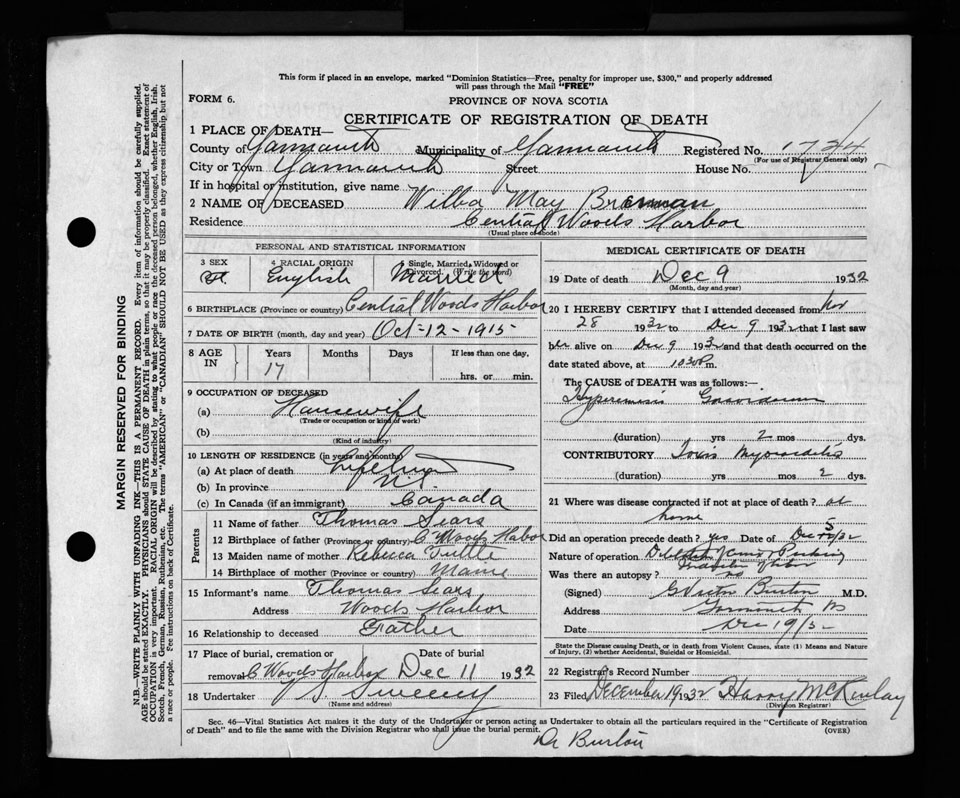 This form if placed in an envelope, marked "Dominion Statistics—Free, penalty for improper use, $300," and properly addressed
will pass through the Mail "FREE"
FORM 6.
PROVINCE OF NOVA SCOTIA
CERTIFICATE OF REGISTRATION OF DEATH
1 PLACE OF DEATH—
County of Yarmouth Municipality of Yarmouth Registered No. 1724
(For use of Registrar General only)
City or Town Yarmouth Street House No.
If in hospital or institution, give name
2 NAME OF DECEASED Wilba May Brennan
Residence Central Woods Harbor
(Usual place of abode)
PERSONAL AND STATISTICAL INFORMATION
3 SEX
4 RACIAL ORIGIN English
Single, Married, Widowed or Divorced. (Write the word) Married
6 BIRTHPLACE (Province or country) Central Woods Harbor
7 DATE OF BIRTH (month, day and year) Oct-12-1915
8 AGE IN Years Months Days If less than one day,
17 hrs. or min.
9 OCCUPATION OF DECEASED
(a) Housewife
(Trade or occupation or kind of work)
(b)
(Kind of industry)
10 LENGTH OF RESIDENCE (in years and months)
(a) At place of death Lifetime
(b) In province N.S.
(c) In Canada (if an immigrant) Canada
Parents
11 Name of father Thomas Sears
12 Birthplace of father (Province or country) C Woods Habor
13 Maiden name of mother Rebecca Tuttle
14 Birthplace of mother (Province or country) Maine
15 Informant's name Thomas Sears
Address Woods Harbor
16 Relationship to deceased Father
17 Place of burial, cremation or Date of burial
removal C Woods Harbor Dec 11 1932
18 Undertaker Sweeney
(Name and address)
MEDICAL CERTIFICATE OF DEATH
19 Date of death Dec 9 1932
(Month, day and year)
20 I HEREBY CERTIFY that I attended deceased from Nov
28 1932 to Dec 9 1932 that I last saw
her alive on Dec 9 1932 and that death occurred on the
date stated above, at 10 30 P.m.
The CAUSE OF DEATH was as follows:—
Hyperemesis Gravidarum
(duration) yrs 2 mos dys.
CONTRIBUTORY Toxic Myocarditis
(duration) yrs mos 2 dys.
21 Where was disease contracted if not at place of death? at
home
Did an operation precede death? yes Date of Dec 5/32
Nature of operation
Was there an autopsy? no
(Signed) Burton M.D.
Address Yarmouth NS
Date Dec 19/32
State the Disease causing Death, or in death from Violent Causes, state (1) Means and Nature
of Injury, (2) whether Accidental, Suicidal or Homicidal.
22 Registrar's Record Number
23 Filed December 19 1932 Harry McKinlay
(Division Registrar)
Sec. 46—Vital Statistics Act makes it the duty of the Undertaker or person acting as Undertaker to obtain all the particulars required in the "Certificate of Registration
of Death" and to file the same with the Division Registrar who shall issue the burial permit.
(OVER)
Dr Burton
MARGIN RESERVED FOR BINDING
N.B.—WRITE PLAINLY WITH UNFADING INK—THIS IS A PERMANENT RECORD. Every item of information should be carefully supplied.
AGE should be stated EXACTLY. PHYSICIANS should STATE CAUSE OF DEATH in plain terms, so that it may be properly classified. Exact statement of
OCCUPATION is very important. RACIAL ORIGIN will be described by stating to what people or race the deceased person belonged, whether English, Irish,
Scotch, French, German, Russian, Ruthenian, etc. The terms "AMERICAN" or "CANADIAN" SHOULD NOT BE USED as they express citizenship but not
a race or people. Fee instructions on back of Certificate.